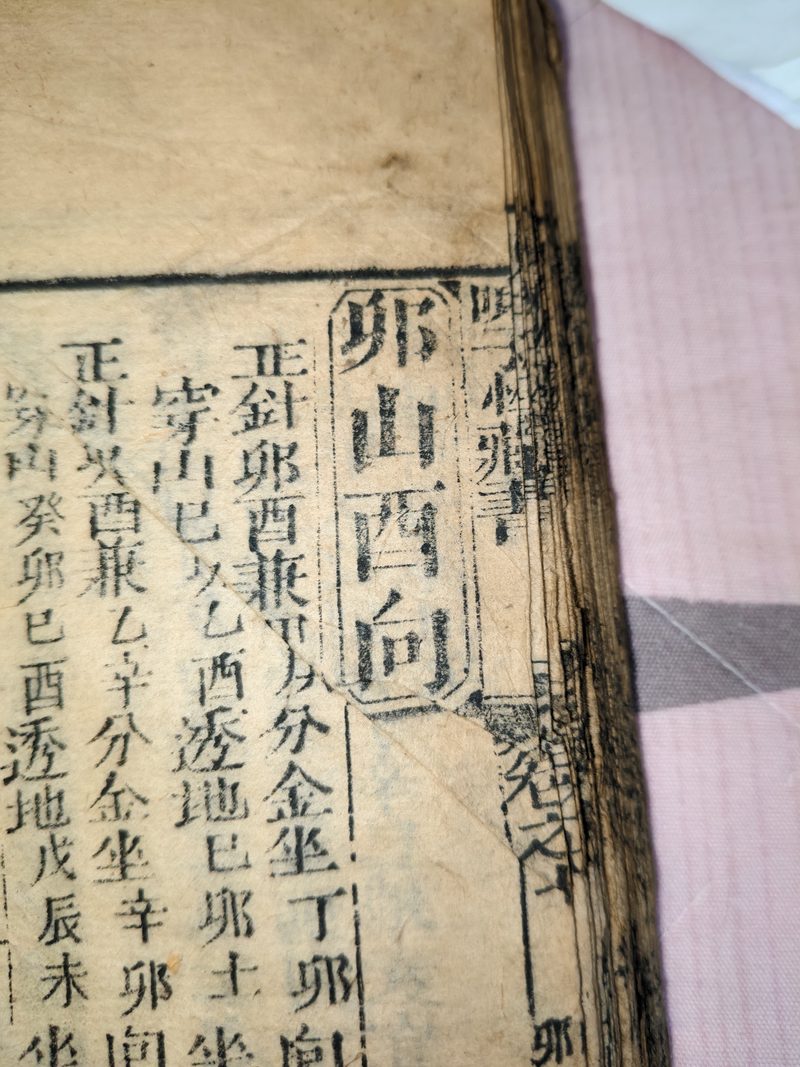 藏書
卷之十
卯
卯山酉向
正針卯酉兼甲庚分金坐丁卯向
穿山巳卯乙酉透地巳卯土坐
正針卯酉兼乙辛分金坐辛卯向
穿山癸卯巳酉透地戊辰未坐